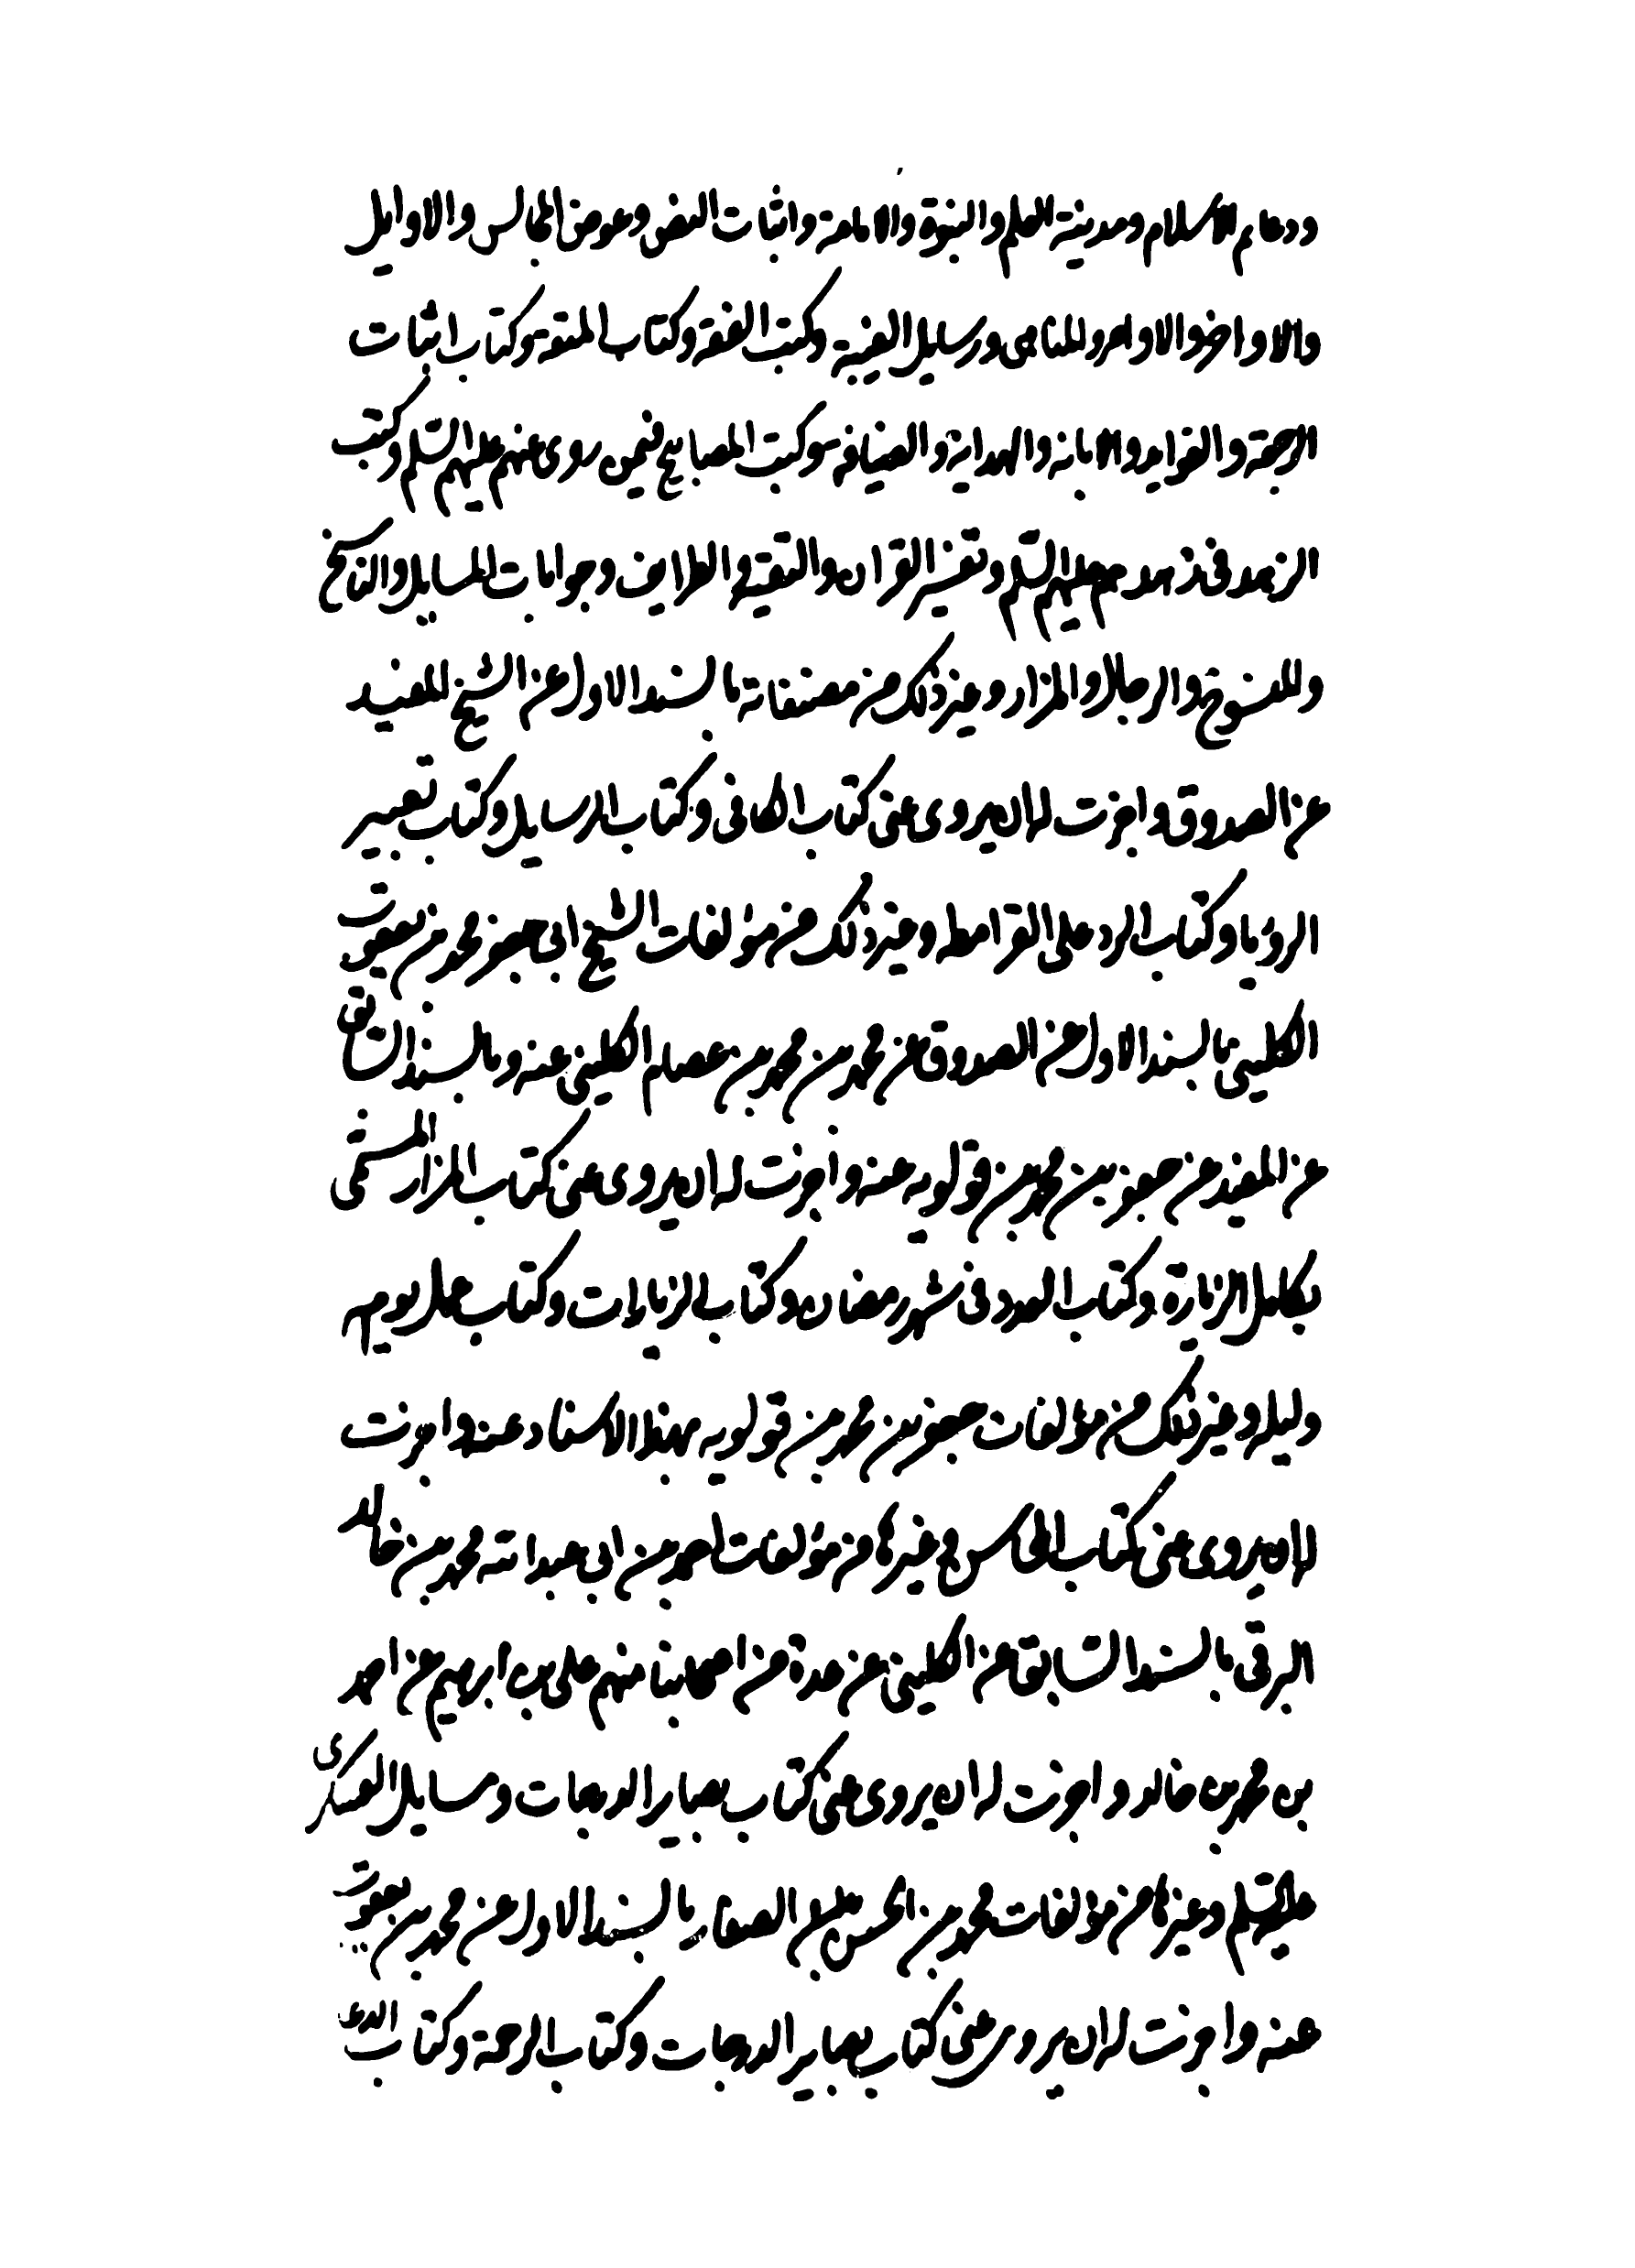 ودعايم الاسلام ومدينة العلم والنبوة والامامة واثبات النص وعوض المجالس والاوايل
والاواخر والاوامر والمناهى ورسايل الغيبة وكتب الفقه وكتاب المتعة وكتاب اثبات
الرجعة والفوايد والابانة والهداية والضيافة وكتب المصابيح فيمن روى عنهم عليهم السلم وكتب
الزهد فى زهدهم عليهم السلم وتفسير القران والتقية والطرايف وجوابات المسايل والناسخ
والمنسوخ والرجال والمزار وغير ذلك من مصنفاته بالسند الاول عن الشيخ المفيد
عن الصدوق واجزت له ان يروى عنى كتاب الكافى وكتاب الرسايل وكتاب تعبير
الرؤيا وكتاب الرد على القرامطه وغير ذلك من مؤلفات الشيخ ابى جعفر محمد بن يعقوب
الكلينى بالسند الاول عن الصدوق عن محمد بن محمد بن عصام الكلينى عنه وبالسند السابق
عن المفيد عن جعفر بن محمد بن قولويه عنه واجزت له ان يروى عنى كتاب المزار المسمى
بكامل الزيارة وكتاب العدد فى شهر رمضان وكتاب الزيارات وكتاب عمل يوم
وليلة وغير ذلك من مؤلفات جعفر بن محمد بن قولويه بهذا الاسناد عنه واجزت
له ان يروى عنى كتاب المحاسن وغيرها من مؤلفات احمد بن ابى عبد الله محمد بن خالد
البرقى بالسند السابق عن الكلينى عن عدة من اصحابنا منهم على بن ابرهيم عن احمد
بن محمد بن خالد واجزت له ان يروى عنى كتاب بصاير الدرجات ومسايل العسكرى
عليه السلم وغيرها من مؤلفات محمد بن الحسن الصفار بالسند الاول عن محمد بن يعقوب
عنه واجزت له ان يروى عنى كتاب بصاير الدرجات وكتاب الرحمة وكتاب